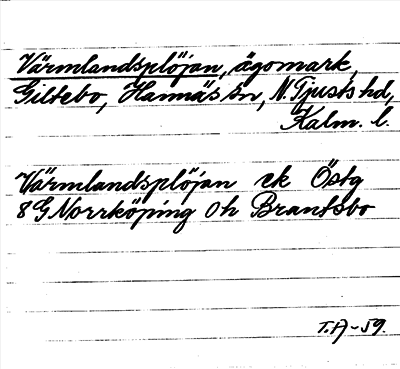 Värmlandsplöjan, ägomark,
Giltebo, Hannäs sn, N. Tjusts hd,
Kalm. l.
Värmlandsplöjan ek Östg
8 G Norrköping 0 h Brantsbo
T.A-59.